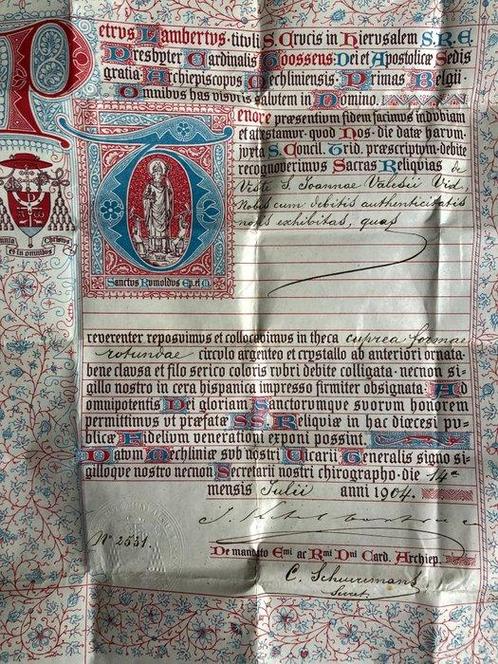 Petrus Lambertus tituli S. Crucis in Hierusalem S.R.E.
Presbyter Cardinalis Goossens Dei et Apostolicæ Sedis
gratia Archiepiscopus Mechliniensis Primas Belgii
Omnibus has visuris salutem in Domino.
Tenore præsentium fidem facimus indubiam
et attestamur quod Nos die datæ harum
juxta S. Concil. Trid. præscriptum debite
recognoverimus Sacras Reliquias de
Veste S. Joannae Valesii Vid.
Nobis cum debitis authenticitatis
notis exhibitas, quas
Omnia Christus
et in omnibus
Sanctus Rumoldus Ep. et M.
reverenter reposuimus et collocavimus in theca cuprea formae
rotundae circulo argenteo et crystallo ab anteriori ornata
bene clausa et filo serico coloris rubri debite colligata necnon si-
gillo nostro in cera hispanica impresso firmiter obsignata Ad
omnipotentis Dei gloriam Sanctorumque suorum honorem
permittimus ut præfatæ SS. Reliquiæ in hac diœcesi pu-
blicæ Fidelium veneration exponi possint.
Datum Mechliniæ sub nostri Vicarii Generalis signo si-
gilloque nostro necnon Secretarii nostri chirographo die 14a
mensis Julii anni 1904.
Nº 2531.
De mandato Emi ac Rmi Dni Card. Archiep.
C. Schuermans
Secret.